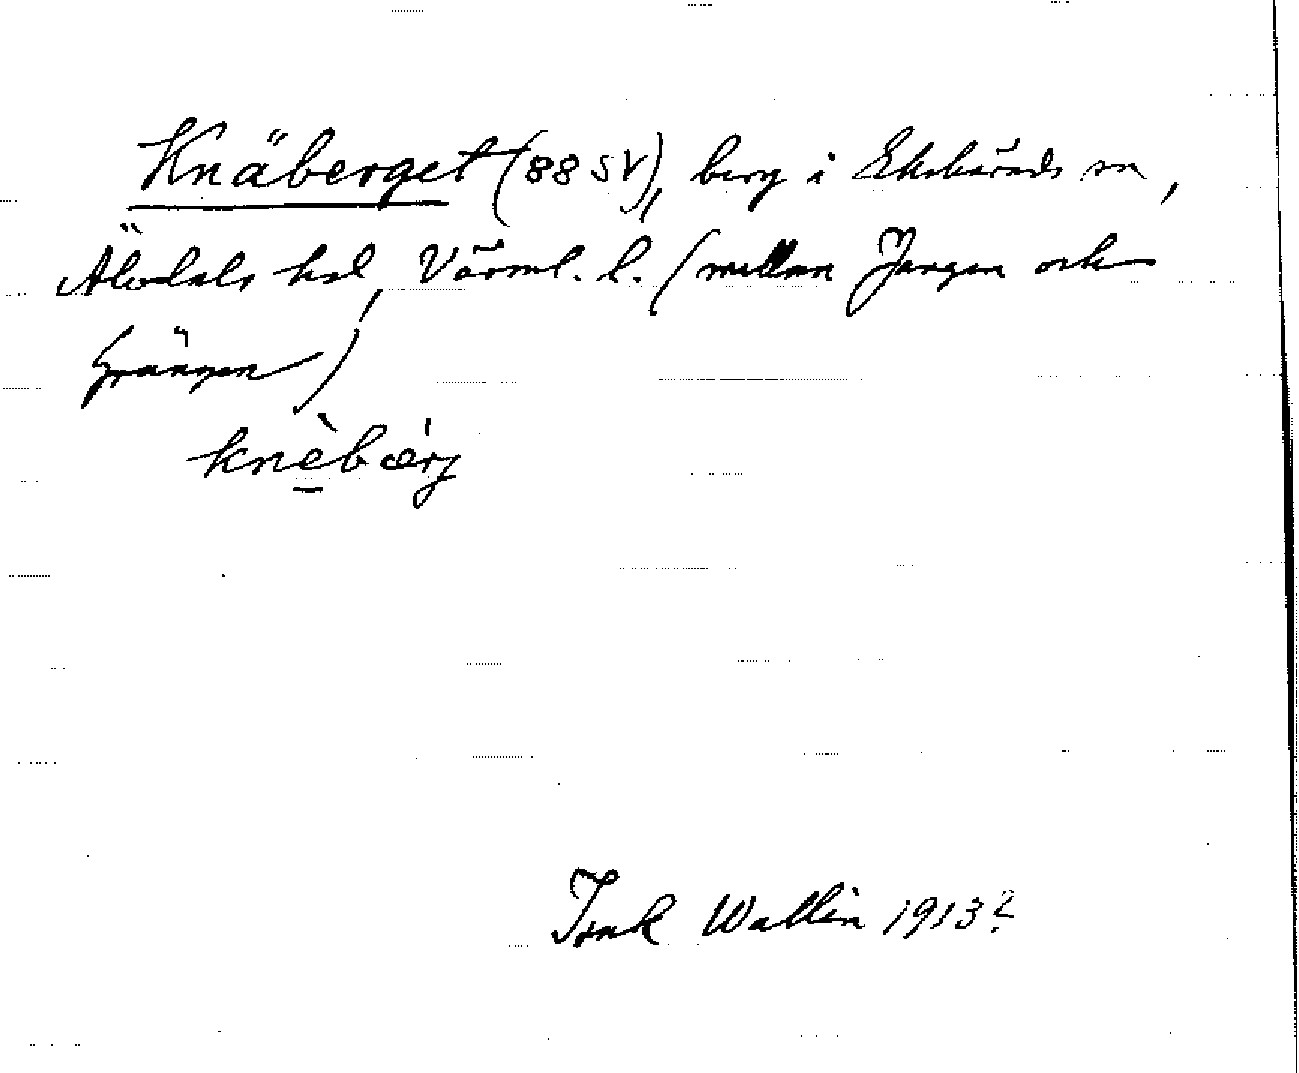 Knäberget (88 SV), berg i Ekshärads sn,
Älvdals hd, Värml. l. (mellan Jangen och
Grängen)
knèbær̍j
Isak Wallin 1913?